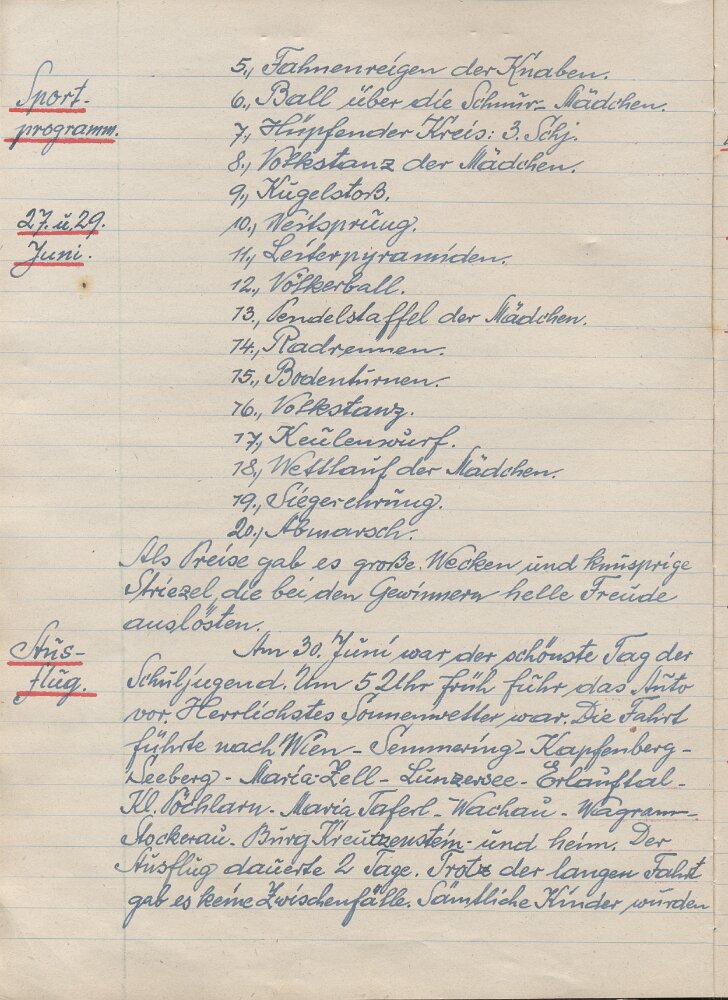 5., Fahnenreigen der Knaben.
Sport-
6., Ball über die Schnur - Mädchen.
programm.
7., Hüpfender Kreis: 3. Schj.
8., Volkstanz der Mädchen.
9., Kugelstoß.
27. u. 29.
10., Weitsprung.
Juni.
11., Leiterpyramiden.
12., Völkerball.
13., Pendelstaffel der Mädchen.
14., Radrennen.
15., Bodenturnen.
16., Volkstanz.
17., Keulenwurf.
18., Wettlauf der Mädchen.
19., Siegerehrung.
20., Abmarsch.
Als Preise gab es große Wecken und knusprige
Striezel, die bei den Gewinnern helle Freude
auslösten.
Aus-
flug.
Am 30. Juni war der schönste Tag der
Schuljugend. Um 5 Uhr früh fuhr das Auto
vor. Herrlichstes Sonnenwetter war. Die Fahrt
führte nach Wien - Semmering - Kapfenberg -
Seeberg - Maria-Zell - Lunzersee - Erlauftal -
Kl. Pöchlarn - Maria Taferl - Wachau - Wagram -
Stockerau - Burg Kreutzenstein - und heim. Der
Ausflug dauerte 2 Tage. Trotz der langen Fahrt
gab es keine Zwischenfälle. Sämtliche Kinder wurden